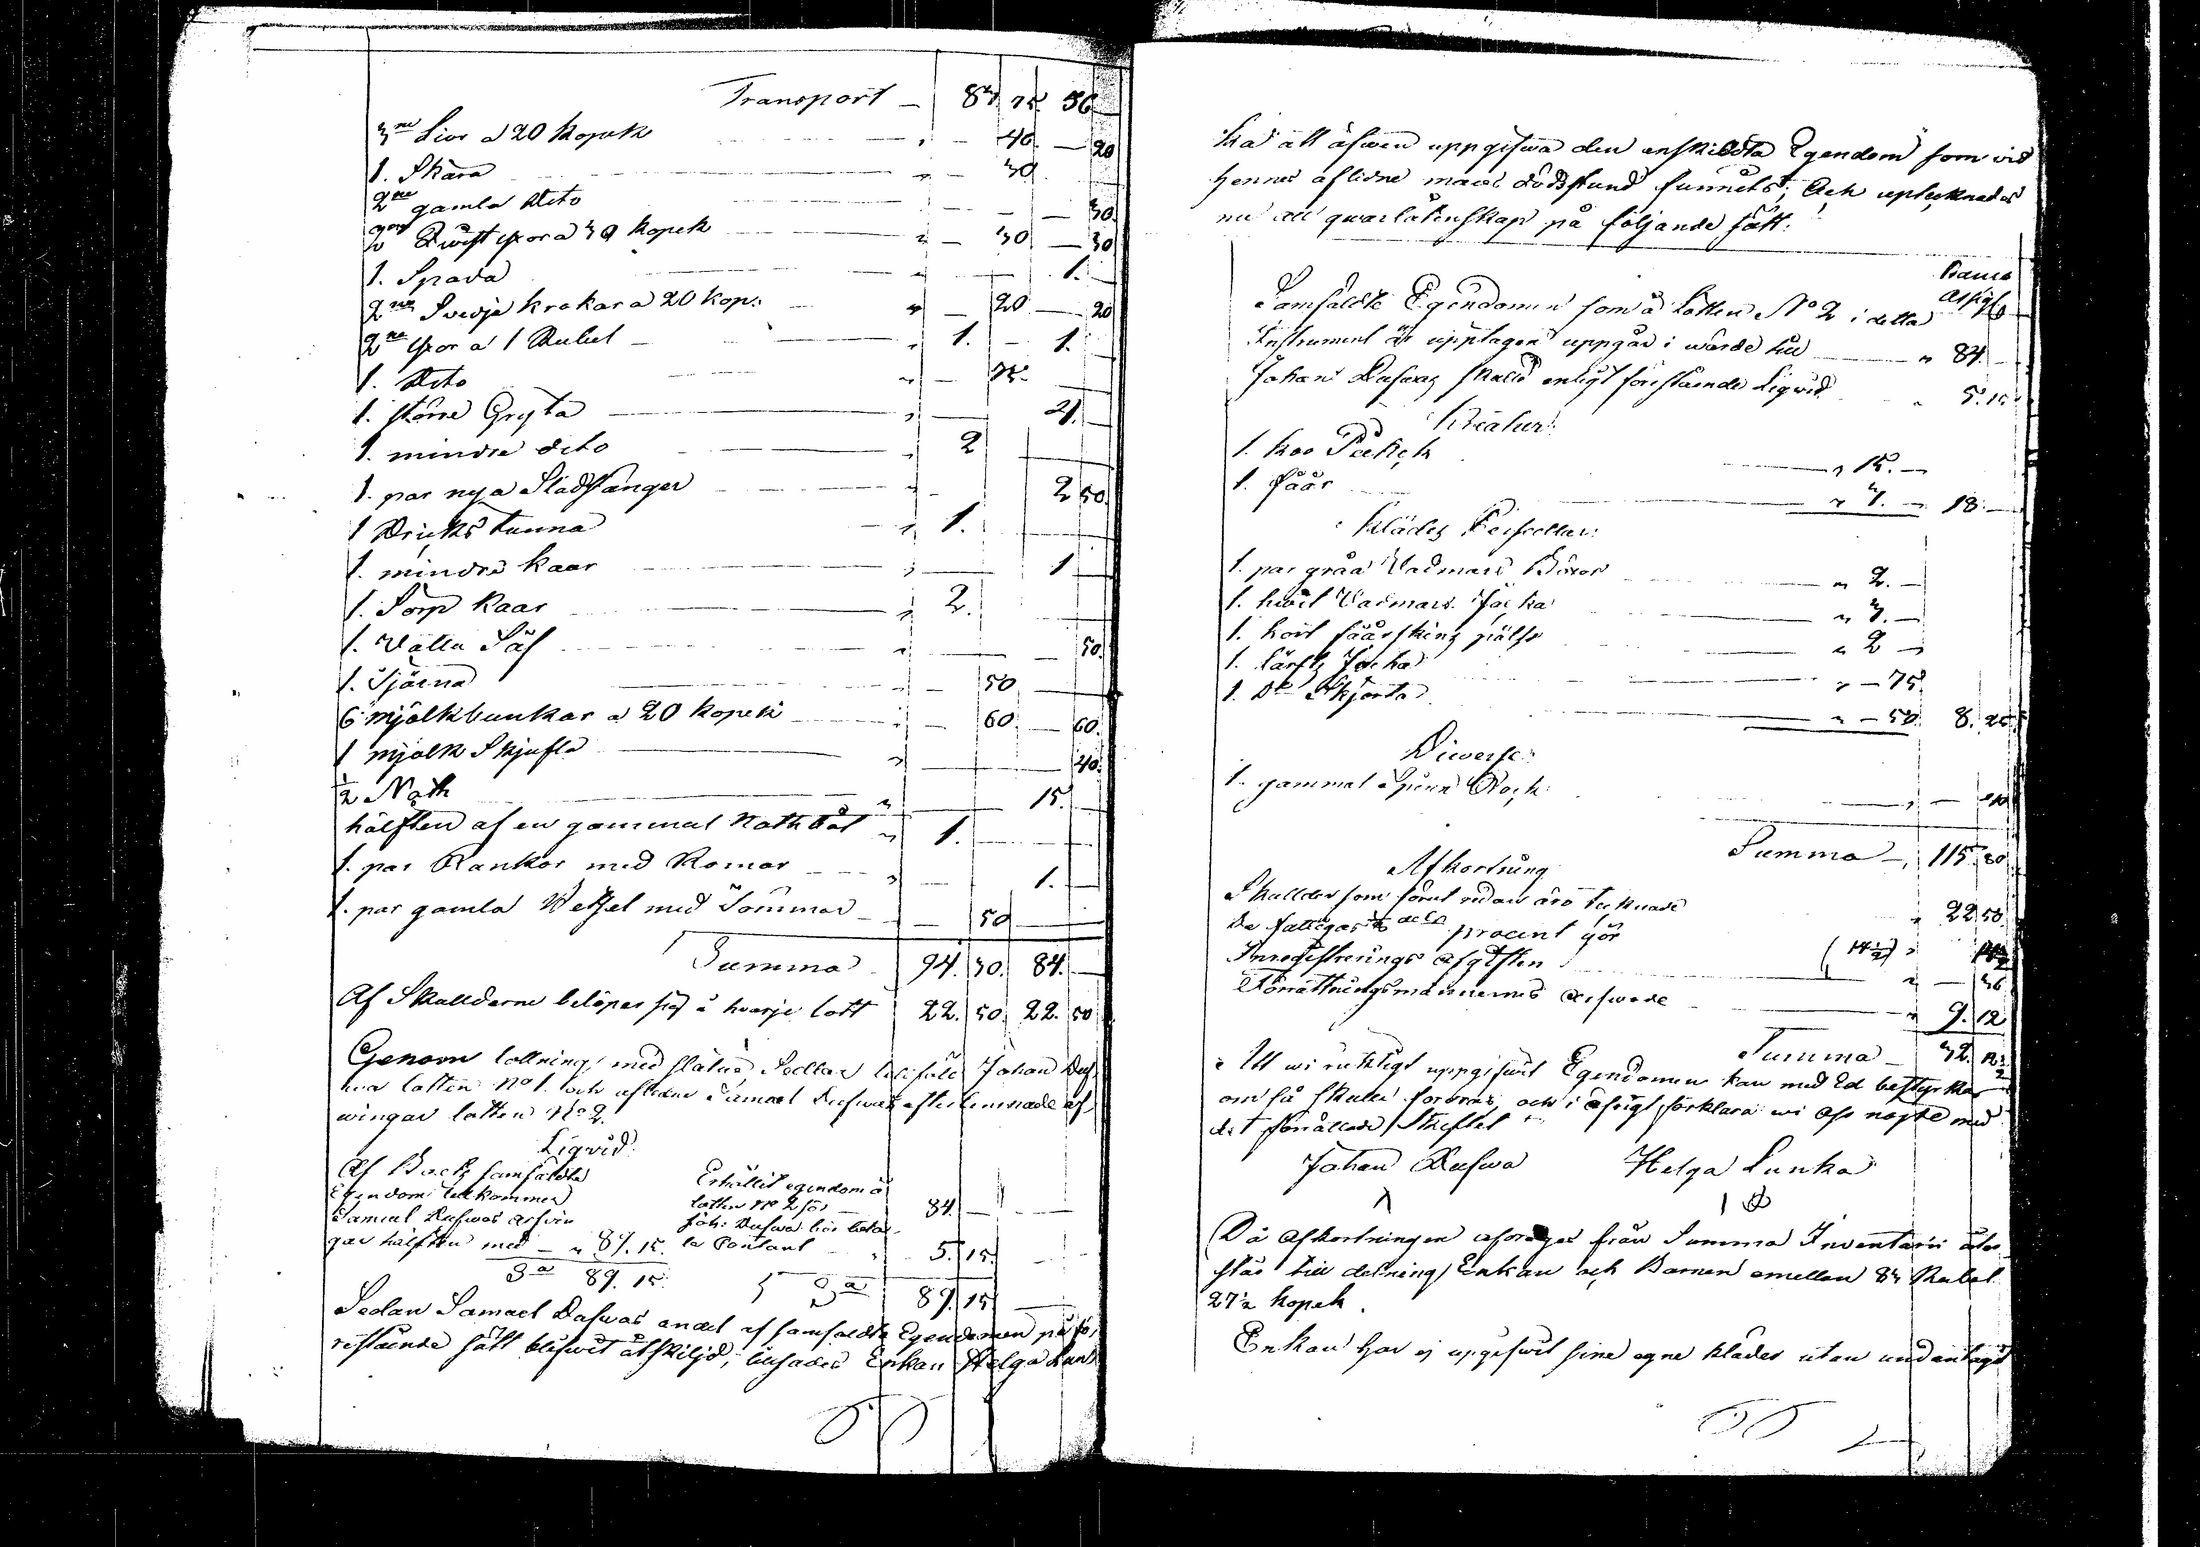 Transport — 84. 75. 56 —
3ne Liar a 20 kopek " — 40. — 20
1. Skära " — 30
2ne gamla dito — — 30.
2ne Qwistyxor a 30 kopek " — 30 — 30
1. Spada " — 1. —
2ne Svedje krokar a 20 kop: " — 20 — 20
2ne yxor a 1 Rubel " 1. — 1.
1. Dito " — 75.
1. större Gryta " — 21.
1. mindre dito " 2
1. par nya Slädstänger " — 2 50.
1 Dricks tunna " 1.
1. mindre kaar " — 1
1. Sörp kaar " 2.
1. Vattu Sås " — 50.
1. Tjärna " — 50
6 mjölkbunkar a 20 kopek " — 60. — 60.
1 mjölk Skjufla " — 40.
½ Noth " — 15.
hälften af en gammal Noth båt " 1. —
1. par Rankor med Romar " — 1. —
1. par gamla Wetsel med Tömmar — 50 —
Summa 94. 30. 84. —
Af Skulderne belöper sig å hvarje lott 22. 50. 22. 50
Genom lottning med slutna Sedlar tillföll Johan Duf-
wa lotten No 1. och aflidne Samuel Dufwas efterlemnade arf-
wingar lotten No 2.
Liqvid:
Af Boets samfäldta
Egendom tillkommer
Samuel Dufwas arfvin
gar hälften med — " 89. 15.
Sa 89. 15.
Erhållit egendom å
lotten No 2 för — 84. —
Joh: Dufwa bör beta-
la Contant " 5. 15.
Sa 89. 15 —
Sedan Samuel Dufwas andel af samfäldta Egendomen på fö-
restående sätt blifwit åtskiljd, lüfsades Enkan Helga Lun-
ka att äfwen uppgifwa den enskildta Egendom som vid
hennes aflidne mans dödsstund funnits; Och uptecknades
nu all qwarlåtenskap på följande sätt:
Banco
Assigt
Samfäldte Egendomen som å Lotten No 2 i detta
Instrument är upptagen uppgår i wärde till " 84. —
Johan Dufwas skuld enligt förestående Liqvid " 5. 15
Kreatur:
1. koo " 15. —
1. fåår " 3. — 18. —
Kläder Persedlar:
1. par gråa Vadmars Böxor " 2. —
1. hwit Vadmars Jacka " 3. —
1. hvit fåårskins pälts " 2 —
1. lärfts Jacka " — 75.
1. Do Skjorta " — 50. 8. 25
Diverse:
1. gammal Spinn Rock " — 40
Summa " 115. 80
Afkortning
Skulder som förut redan äro tecknade " 22 50
De fattigas 1/8 dels procent gör (14½) " 14½
Inregistrerings afgiften " — 36
Förrättningsmännernes arfwode " 9. 12
Summa — 32. 12½
Att wi riktigt uppgifwit Egendomen kan med Ed bestyrkas
om så skulle fordras, och i öfrigt förklara wi oss nöjde med
det förrättade Skiftet
Johan Dufwa Helga Lunka
Då Afkortningen afdrages från Summa Inventarii åter
står till delning Enkan och Barnen emellan 83 Rubel
27½ kopek.
Enkan har ej upgifwit sine egne kläder utan undantagit